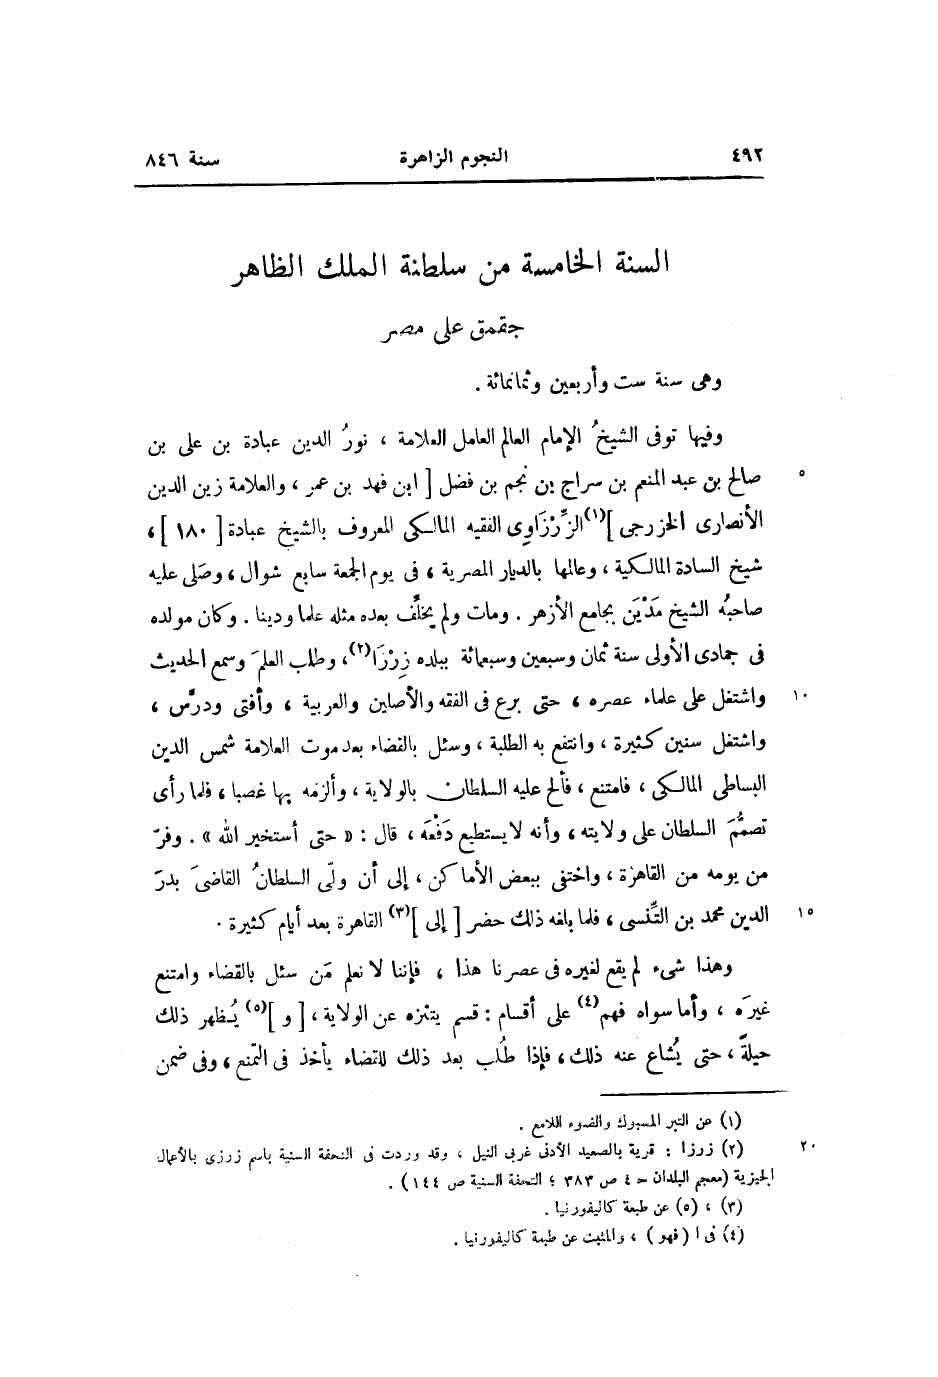 ٤٩٢ النجوم الزاهرة سنة ٨٤٦
السنة الخامسة من سلطنة الملك الظاهر
جقمق على مصر
وهى سنة ست وأربعين وثمانمائة .
وفيها توفى الشيخُ الإمام العالم العامل العلامة ، نورُ الدين عبادة بن على بن
صالح بن عبد المنعم بن سراج بن نجم بن فضل [ ابن فهد بن عمر ، والعلامة زين الدين ٥
الأنصارى الخزرجى ](١) الزِّرْزَاوِى الفقيه المالكى المعروف بالشيخ عبادة [ ١٨٠ ] ،
شيخ السادة المالكية ، وعالمها بالديار المصرية ، فى يوم الجمعة سابع شوال ، وصَلى عليه
صاحبُه الشيخ مَدْيَن بجامع الأزهر . ومات ولم يخلَّف بعده مثله علما ودينا . وكان مولده
فى جمادى الأولى سنة ثمان وسبعين وسبعمائة ببلده زِرْزَا(٢) ، وطلب العلمَ وسمع الحديث
واشتغل على علماء عصره ، حتى برع فى الفقه والأصلين والعربية ، وأفتى ودرَّس ، ١٠
واشتغل سنين كثيرة ، وانتفع به الطلبة ، وسئل بالقضاء بعد موت العلامة شمس الدين
البساطى المالكى ، فامتنع ، فألح عليه السلطان بالولاية ، وألزمه بها غصبا ، فلما رأى
تصمُّمَ السلطان على ولايته ، وأنه لا يستطيع دَفْعَه ، قال : « حتى أستخير الله » . وفرّ
من يومه من القاهرة ، واختفى ببعض الأماكن ، إلى أن ولّى السلطانُ القاضىَ بدرَ
الدين محمد بن التِّنسى ، فلما بلغه ذلك حضر [ إلى ](٣) القاهرة بعد أيام كثيرة . ١٥
وهذا شىء لم يقع لغيره فى عصرنا هذا ، فإننا لا نعلم مَن سئل بالقضاء وامتنع
غيرَه ، وأما سواه فهم(٤) على أقسام : قسم يتنزه عن الولاية ، [ و ](٥) يُظهر ذلك
حيلةً ، حتى يُشاع عنه ذلك ، فإذا طُلب بعد ذلك للقضاء يأخذ فى التمنع ، وفى ضمن
(١) عن التبر المسبوك والضوء اللامع .
(٢) زرزا : قرية بالصعيد الأدنى غربى النيل ، وقد وردت فى التحفة السنية باسم زرزى بالأعمال ٢٠
الجيزية (معجم البلدان ح ٤ ص ٣٨٣ ؛ التحفة السنية ص ١٤٤) .
(٣) ، (٥) عن طبعة كاليفورنيا .
(٤) فى ا ( فهو ) ، والمثبت عن طبعة كاليفورنيا .